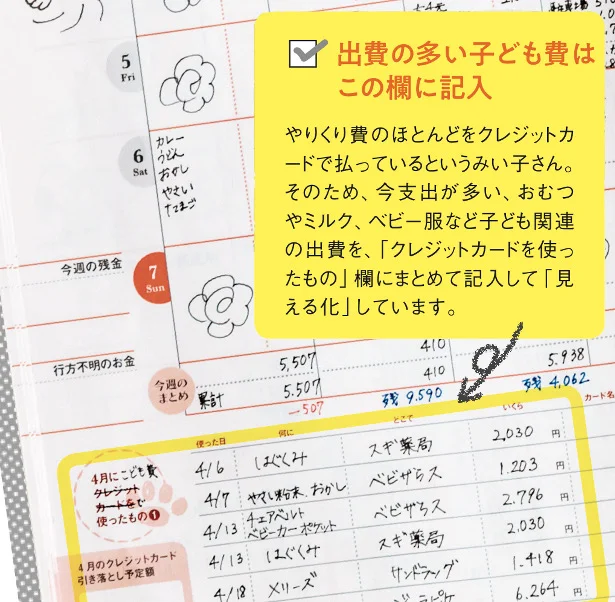 出費の多い子ども費は
この欄に記入
やりくり費のほとんどをクレジットカ
ードで払っているというみい子さん。
そのため、今支出が多い、おむつ
やミルク、ベビー服など子ども関連
の出費を、「クレジットカードを使っ
たもの」欄にまとめて記入して「見
える化」しています。
5
Fri
6
Sat
カレー
うどん
おかし
やさい
たまご
今週の残金
7
Sun
行方不明のお金
今週の
まとめ
5,507 410 5,938
累計 5,507 410
-507 残 9,590 残 4,062
カード名
使った日 何に どこで いくら
4月にこども費
クレジット
カードをで
使ったもの❶
4/6 はぐくみ スギ薬局 2,030 円
4/7 やさい粉末、おかし ベビザらス 1,203 円
4/13 チェアベルト
ベビーカーポケット ベビザらス 2,796 円
4/13 はぐくみ スギ薬局 2,030 円
4/18 メリーズ サンドラッグ 1,418 円
6,264 円
4月のクレジットカード
引き落とし予定額